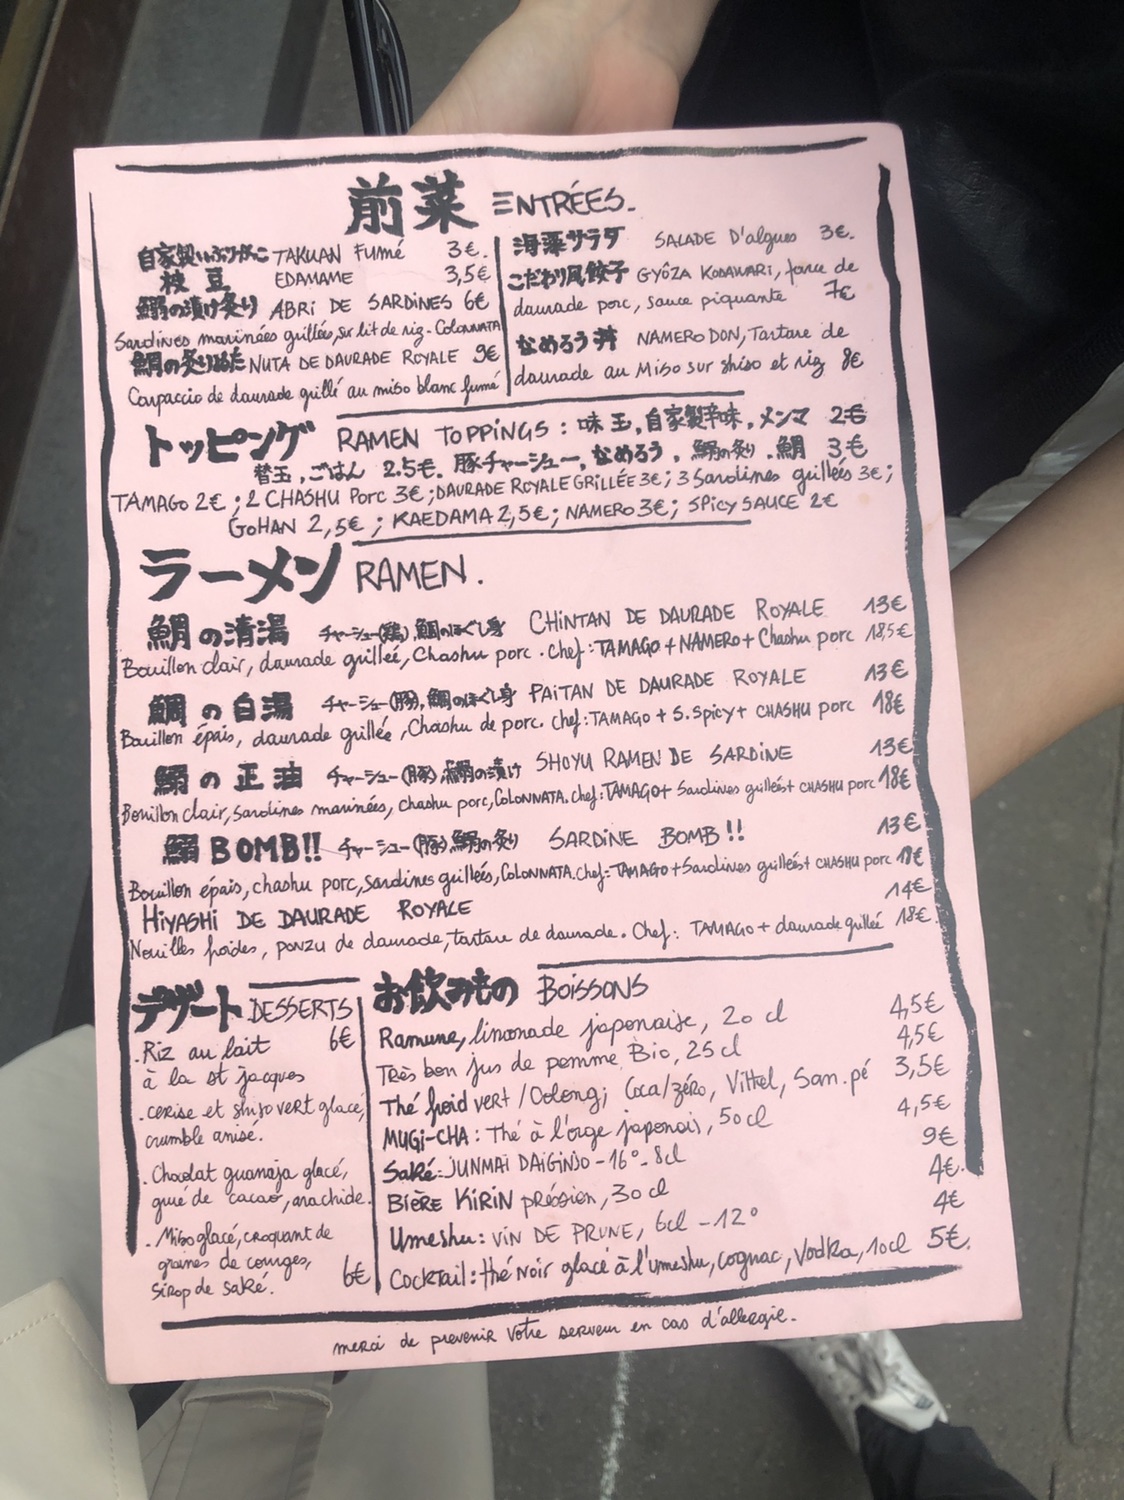 前菜 ENTRÉES.
自家製いぶりがっこ TAKUAN Fumé 3€.
枝豆 EDAMAME 3,5€
鰯の漬け炙り ABRI DE SARDINES 6€
Sardines marinées grillées, sur lit de riz - Colonnata
鯛の炙りぬた NUTA DE DAURADE ROYALE 9€
Carpaccio de daurade grillé au miso blanc fumé
海藻サラダ SALADE D'algues 3€.
こだわり風餃子 GYÔZA KODAWARI, farce de
daurade porc, sauce piquante 7€
なめろう丼 NAMERO DON, Tartare de
daurade au Miso sur shiso et riz 8€
トッピング RAMEN TOPPINGS : 味玉, 自家製辛味, メンマ 2€
替玉, ごはん 2.5€. 豚チャーシュー, なめろう, 鰯の炙り. 鯛 3€
TAMAGO 2€ ; 2 CHASHU Porc 3€ ; DAURADE ROYALE GRILLÉE 3€ ; 3 Sardines grillées 3€ ;
GOHAN 2,5€ ; KAEDAMA 2,5€ ; NAMERO 3€ ; SPICY SAUCE 2€
ラーメン RAMEN.
鯛の清湯 チャーシュー(鶏), 鯛のほぐし身 CHINTAN DE DAURADE ROYALE 13€
Bouillon clair, daurade grillée, Chashu porc. chef : TAMAGO + NAMERO + Chashu porc 18,5€
鯛の白湯 チャーシュー(豚), 鯛のほぐし身 PAITAN DE DAURADE ROYALE 13€
Bouillon épais, daurade grillée, Chashu de porc. chef : TAMAGO + S. Spicy + CHASHU porc 18€
鰯の正油 チャーシュー(豚), 鰯の漬け SHOYU RAMEN DE SARDINE 13€
Bouillon clair, Sardines marinées, chashu porc, COLONNATA. Chef : TAMAGO + Sardines grillées + CHASHU porc 18€
鰯 BOMB!! チャーシュー(豚) 鰯の炙り SARDINE BOMB!! 13€
Bouillon épais, chashu porc, Sardines grillées, COLONNATA. chef : TAMAGO + Sardines grillées + CHASHU porc 18€
HIYASHI DE DAURADE ROYALE 14€
Nouilles froides, ponzu de daurade, tartare de daurade. Chef : TAMAGO + daurade grillée 18€.
デザート DESSERTS
. Riz au lait 6€
à la St jacques
. cerise et shiso vert glacé,
crumble anisé.
. Chocolat guanaja glacé,
grué de cacao, arachide.
. Miso glacé, croquant de
graines de courges,
sirop de saké. 6€
お飲みもの BOISSONS
Ramune, limonade japonaise, 20 cl 4,5€
Très bon jus de pomme Bio, 25 cl 4,5€
Thé froid vert / Oolong ; Coca/zéro, Vittel, San. pé 3,5€
MUGI-CHA : Thé à l'orge japonais, 50 cl 4,5€
Saké : JUNMAI DAIGINJO - 16° - 8cl 9€
Bière KIRIN préssion, 30 cl 4€.
Umeshu : VIN DE PRUNE, 6cl - 12° 4€
Cocktail : thé noir glacé à l'umeshu, cognac, Vodka, 10cl 5€.
merci de prevenir votre serveur en cas d'allergie.